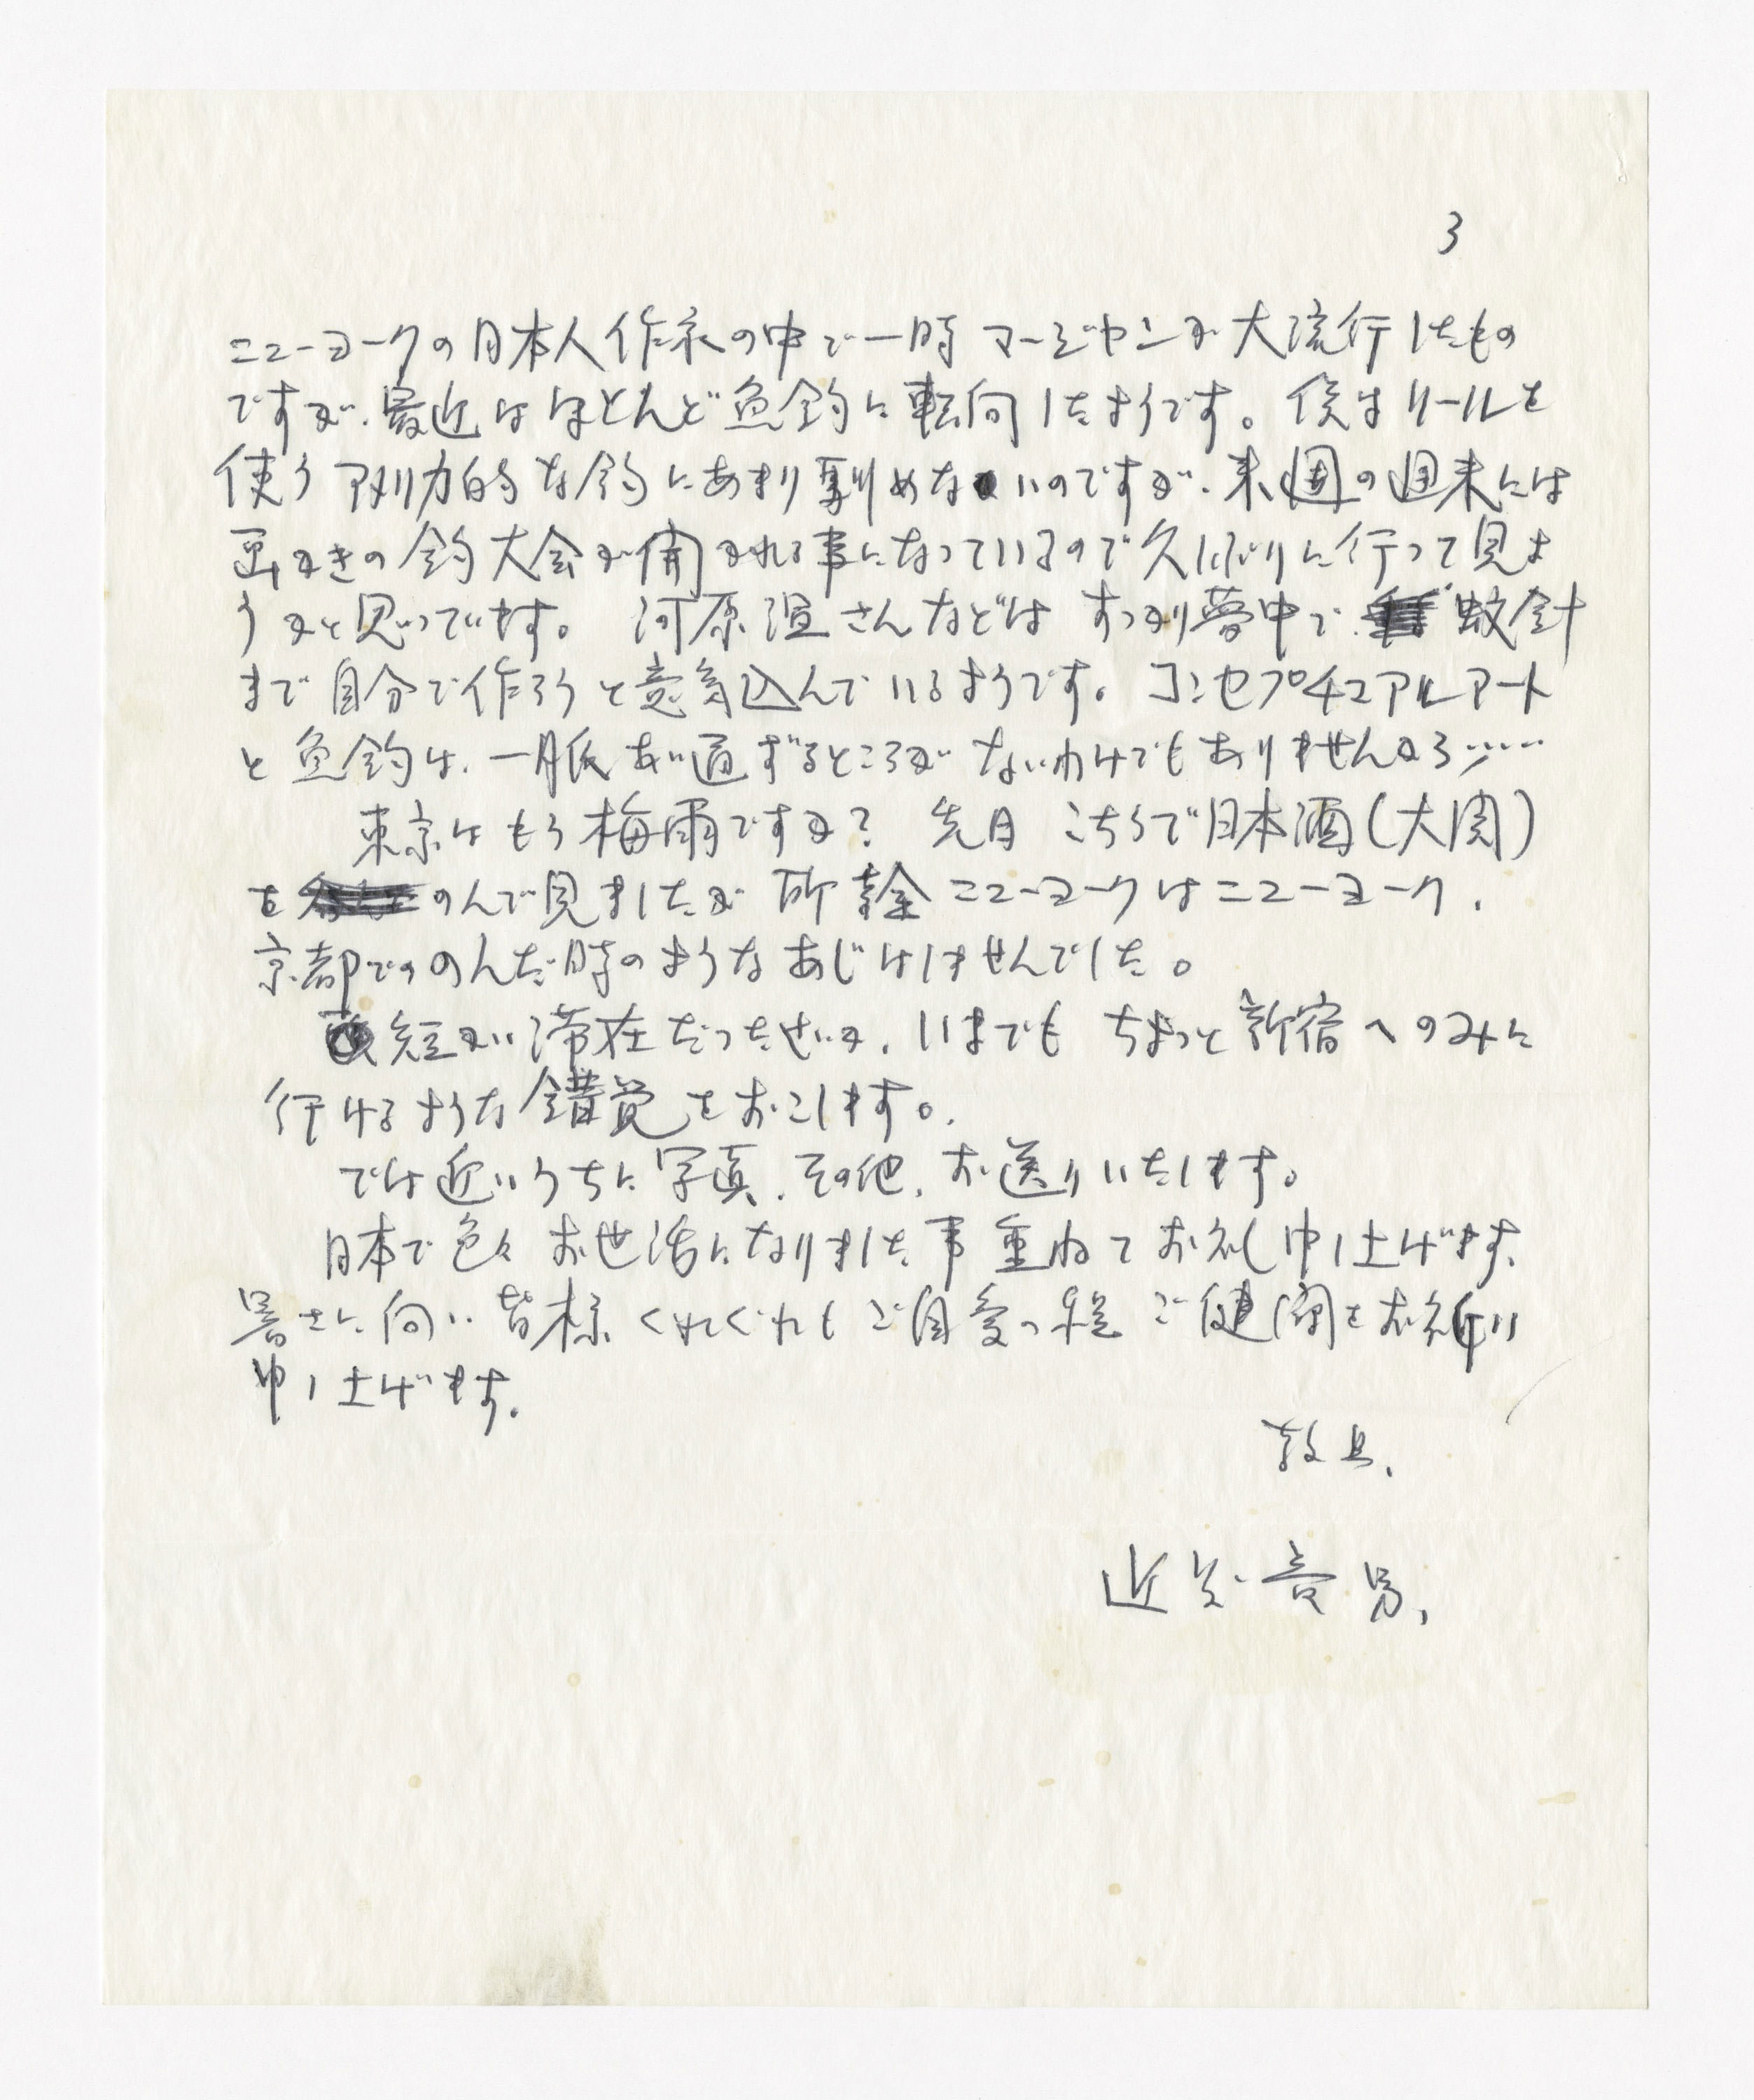 3
ニューヨークの日本人作家の中で一時マージャンが大流行したもの
ですが、最近はほとんど魚釣に転向したようです。僕はリールを
使うアメリカ的な釣にあまり馴めないのですが、来週の週末には
画かきの釣大会が開かれる事になっているので久しぶりに行って見よ
うかと思ってます。河原温さんなどはすっかり夢中で蚊針
まで自分で作ろうと意気込んでいるようです。コンセプチュアルアート
と魚釣は、一脈あい通ずるところがないわけでもありませんから……
東京はもう梅雨ですか? 先月こちらで日本酒(大関)
をのんで見ましたが所詮ニューヨークはニューヨーク、
京都でのんだ時のようなあじはしませんでした。
短かい滞在だったせいか、いまでもちょっと新宿へのみに
行けるような錯覚をおこします。
では近いうちに写真、その他、お送りいたします。
日本で色々お世話になりました事重ねてお礼申し上げます、
暑さに向い皆様くれぐれもご自愛の程ご健闘をお祈り
申し上げます。
敬具、
近 男、